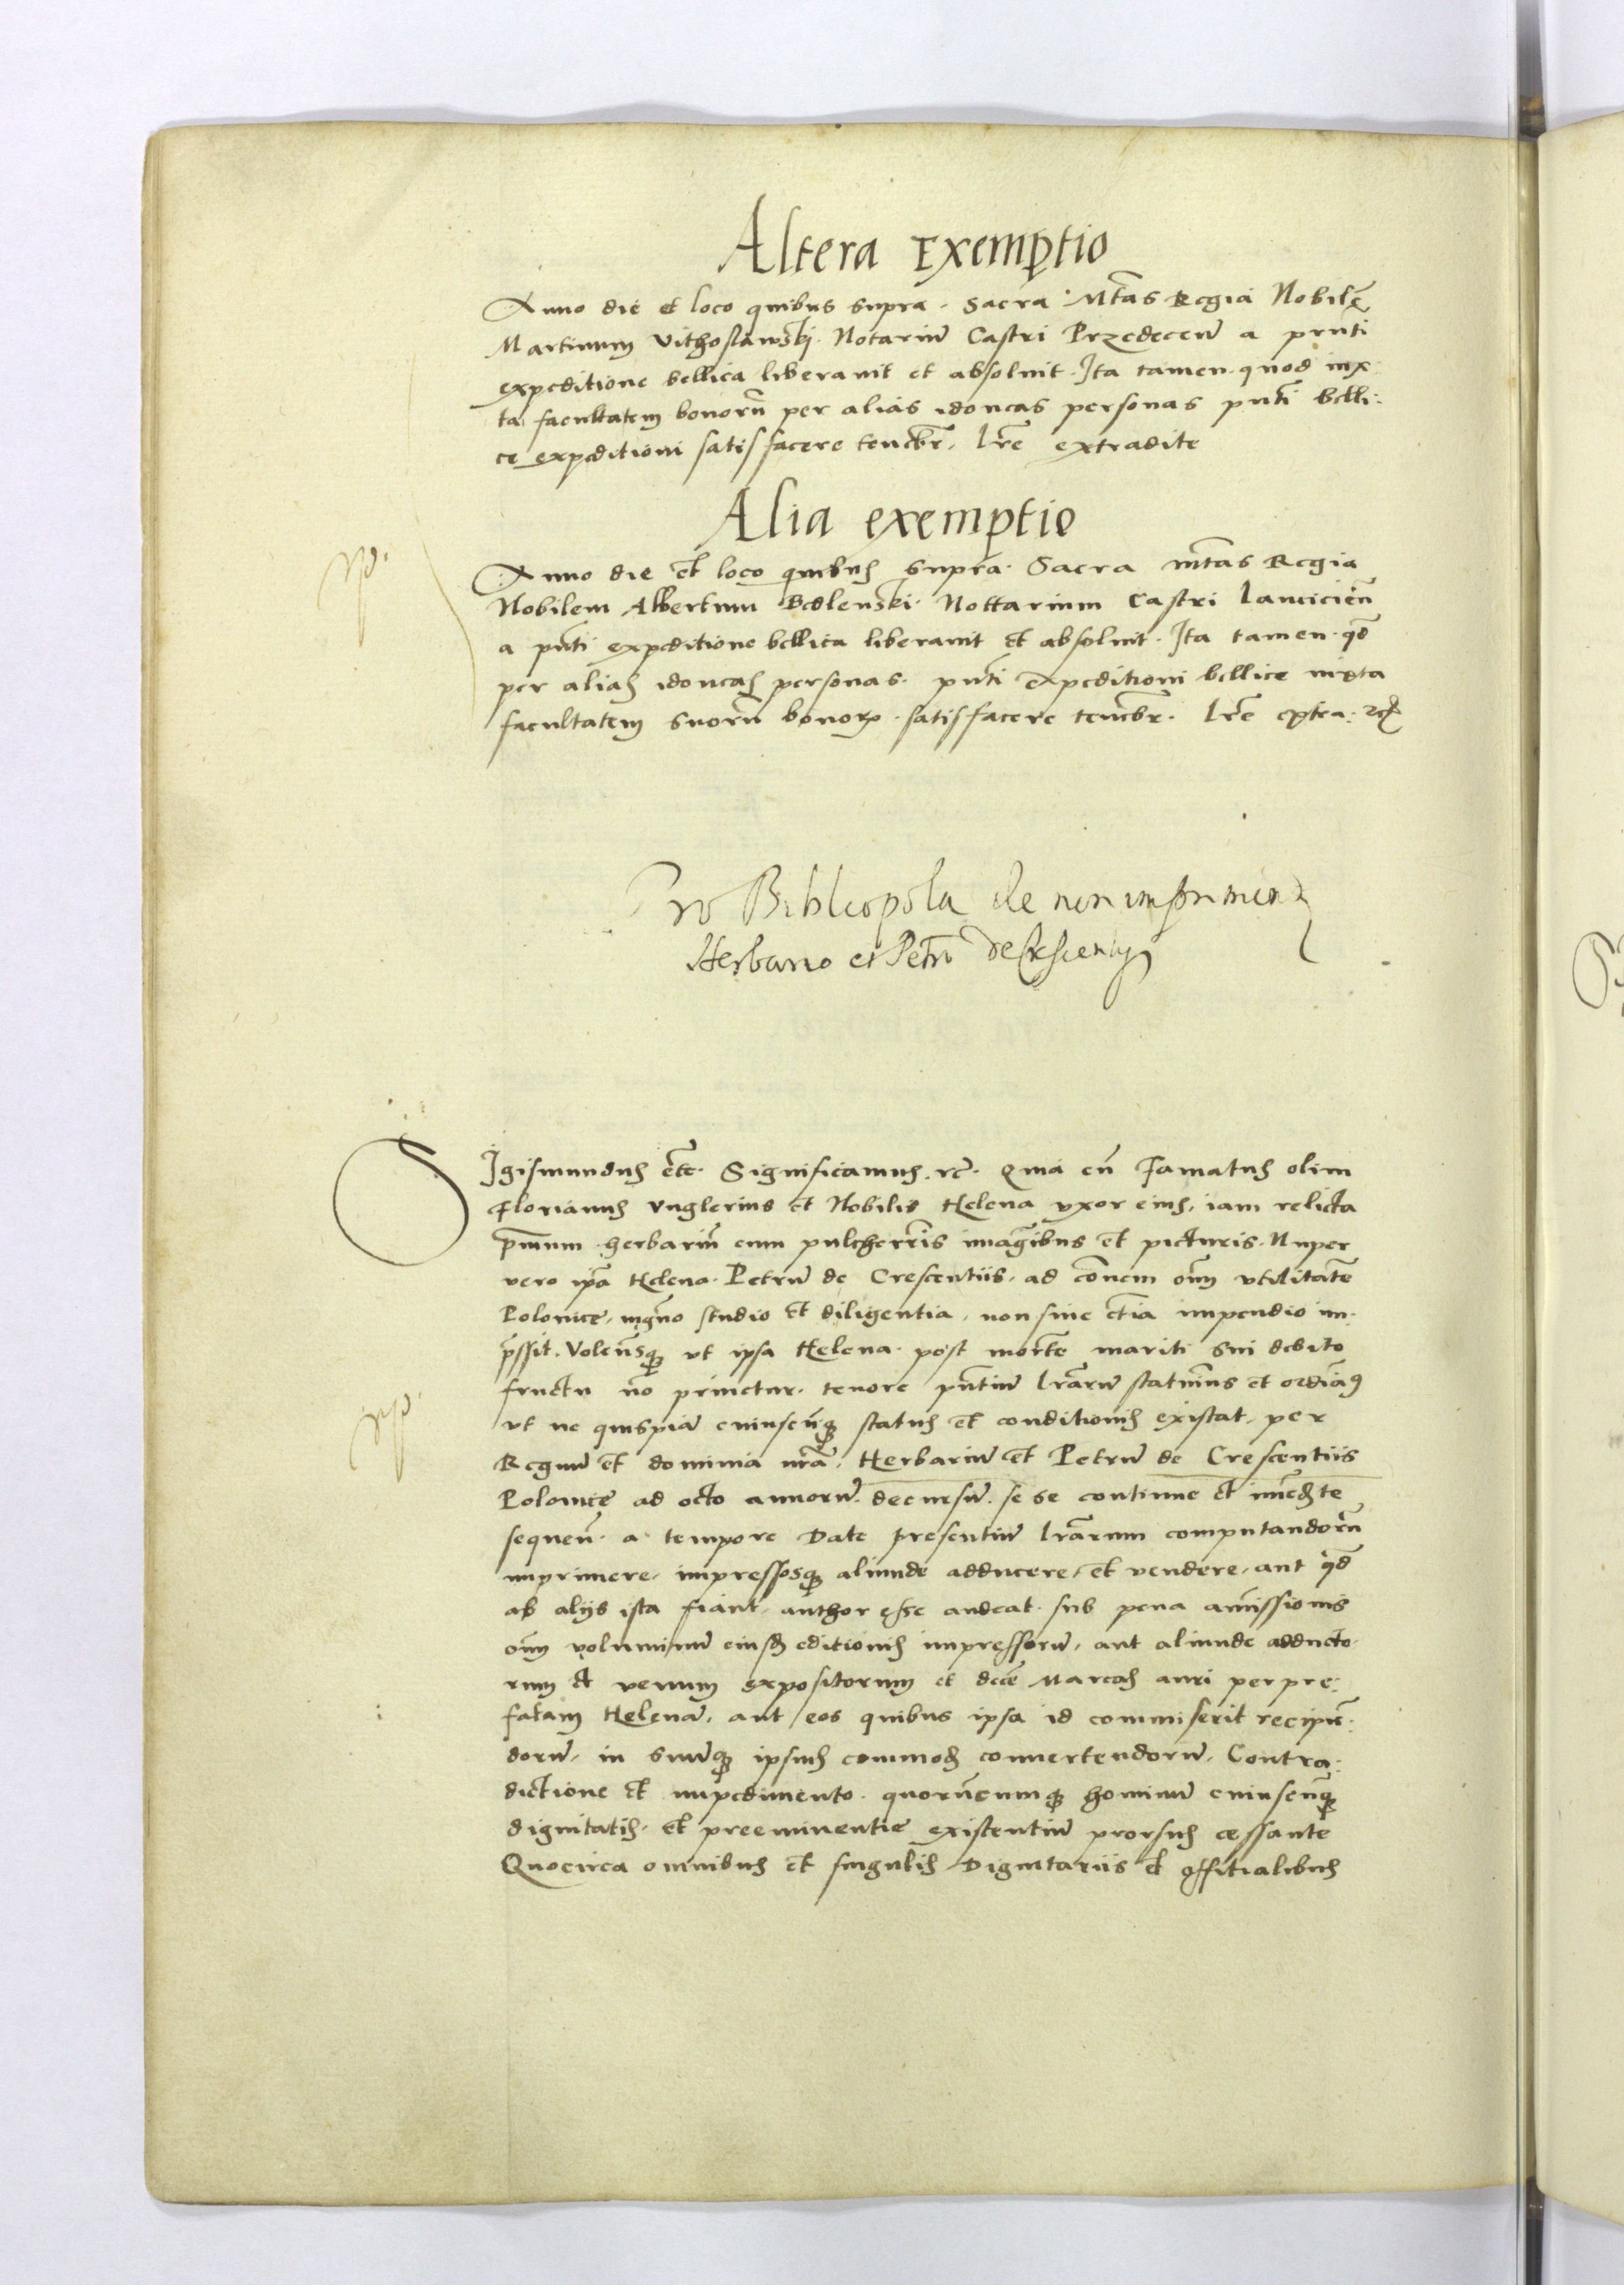 Altera Exemptio
Anno die et loco quibus supra. Sacra Mtas Regia Nobilē
Martinum Vithoslawski. Notariū Castri Przedeceñ a prnti
expeditione bellica liberavit et absolvit. Ita tamen quod iux
ta facultatem bonorū per alias idoneas personas pnti belli:
ce expeditioni satisfacere tenebr̄. Lr̄e extradite
Alia exemptio
Anno die et loco quibus supra. Sacra mtas Regia
Nobilem Albertum Bedlenski. Nottarium Castri Lanciciēn
a pn̄ti expeditione bellica liberavit et absolvit. Ita tamen qd̄
per alias idoneas personas. pn̄ti expeditioni bellice iuxta
facultatem suorū bonoꝝ satisfacere tenebr̄. Lr̄e extra: &c
Pro Bibliopola de non imprimen
Herbario et Petro de Crescentijs
SIgismundus etc. Significamus &c. Quia cū Famatus olim
Florianus Unglerius et Nobilis Helena uxor eius, iam relicta
p̄mum herbariū cum pulcherr̄is imagībus et picturis. Nuper
vero ip̄a Helena. Petrū de Crescentiis, ad cōnem oīm utilitatē
Polonice, mgno studio et diligentia, non sine etīa impendio im
p̄ssit. Volentesq ut ipsa Helena post mortē mariti sui debito
fructu nō privetur. tenore pn̄tiū lrārū statuimus et ordiā9
ut ne quispiā cuiuscūq status et conditionis existat, per
Regnū et dominia nr̄a, Herbariū et Petrū de Crescentiis
Polonice ad octo annorū decursū se se continue et im̄ed̄te
sequeñ a tempore Date presentiū lrārum computandorū
imprimere, impressosq aliunde adducere, et vendere, aut qd̄
ab alijs ista fiant, author esse audeat sub pena amissionis
oīm voluminū eiusd̄ editionis impressorū, aut aliunde adducto
rum et venum expositorum et decē Marcas auri per pre:
fatam Helenā, aut eos quibus ipsa id commiserit recipiē:
dorū, in suūq ipsius commod̄ convertendorū, Contra:
dictione et impedimento quorūcumq hominū cuiuscūq
dignitatis et preeminentie existentiū prorsus cessante
Quocirca omnibus et singulis Dignitariis et offitialibus